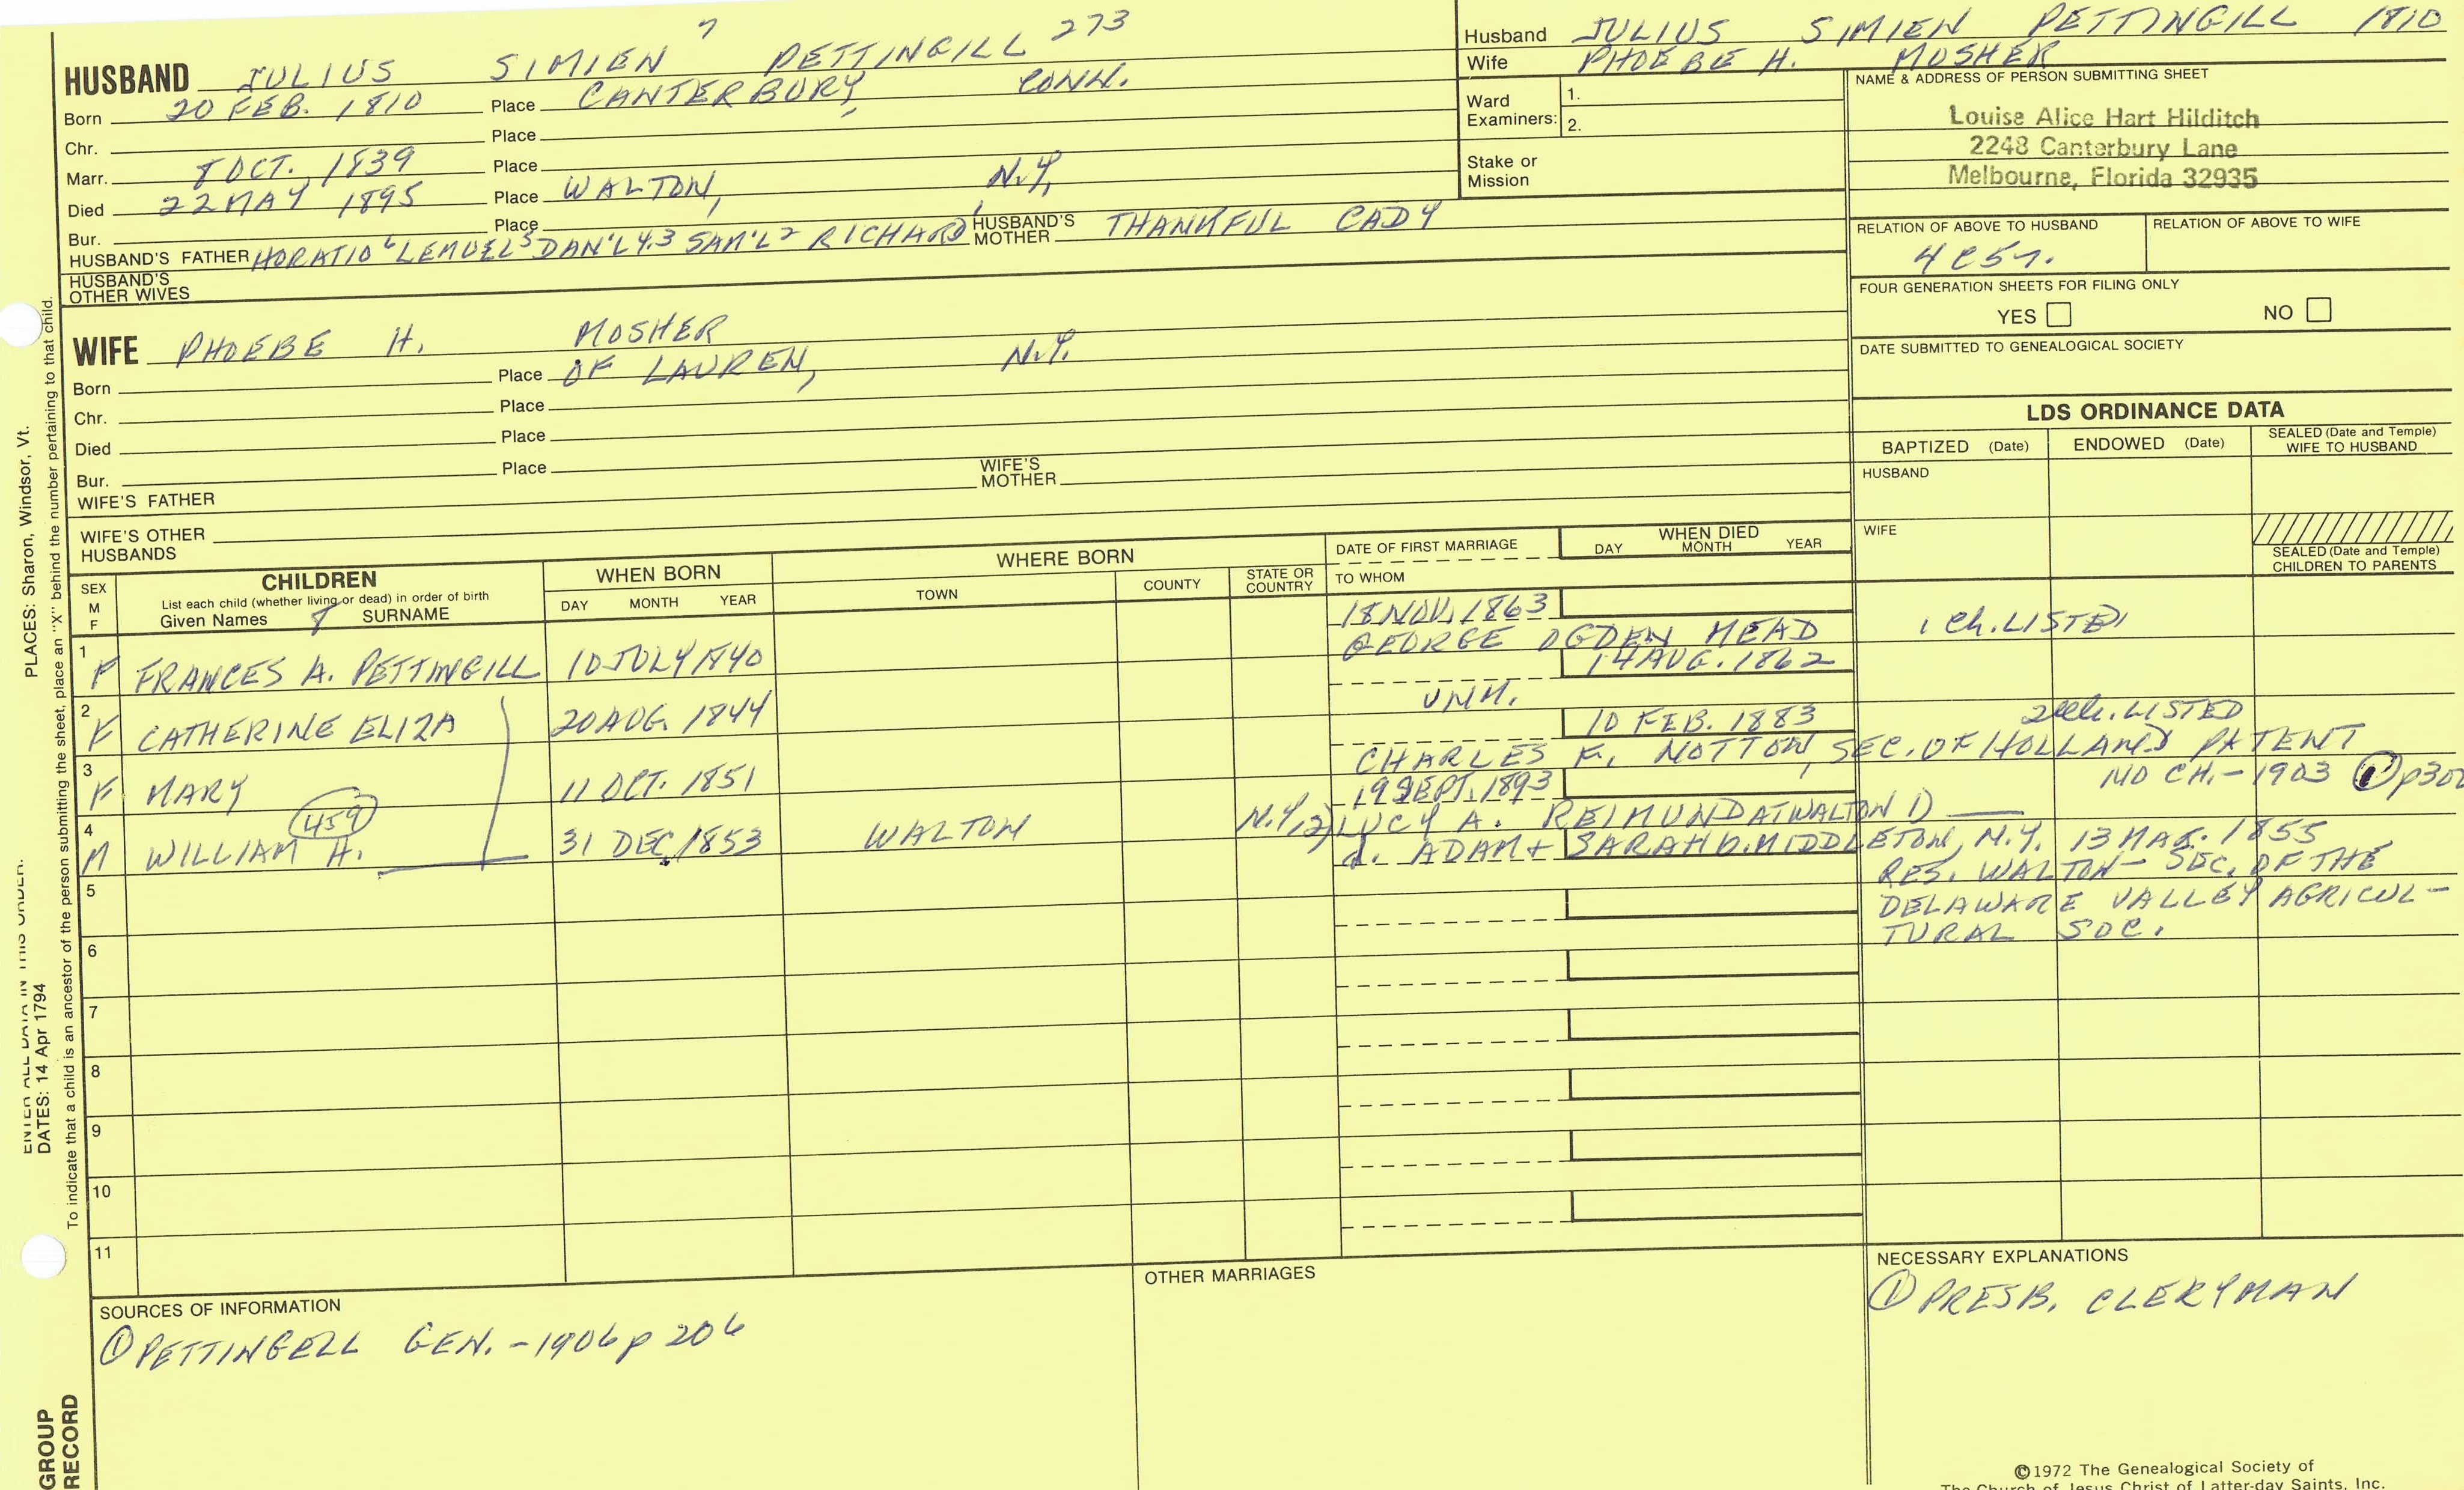 HUSBAND JULIUS SIMIEN 7 PETTINGILL 273
Born 20 FEB. 1810 Place CANTERBURY, CONN.
Chr. Place
Marr. 8 OCT. 1839 Place
Died 22 MAY 1895 Place WALTON, N.Y.
Bur. Place
HUSBAND'S FATHER HORATIO 6 LEMUEL 5 DAN'L 4.3 SAM'L 2 RICHARD HUSBAND'S MOTHER THANKFUL CADY
HUSBAND'S OTHER WIVES
WIFE PHOEBE H. MOSHER
Born Place OF LAUREN, N.Y.
Chr. Place
Died Place
Bur. Place
WIFE'S FATHER WIFE'S MOTHER
WIFE'S OTHER HUSBANDS
Husband JULIUS SIMIEN PETTINGILL 1810
Wife PHOEBE H. MOSHER
Ward Examiners: 1.
2.
Stake or Mission
NAME & ADDRESS OF PERSON SUBMITTING SHEET
Louise Alice Hart Hilditch
2248 Canterbury Lane
Melbourne, Florida 32935
RELATION OF ABOVE TO HUSBAND RELATION OF ABOVE TO WIFE
FOUR GENERATION SHEETS FOR FILING ONLY
YES NO
DATE SUBMITTED TO GENEALOGICAL SOCIETY
LDS ORDINANCE DATA
BAPTIZED (Date) ENDOWED (Date) SEALED (Date and Temple) WIFE TO HUSBAND
HUSBAND
WIFE
SEALED (Date and Temple) CHILDREN TO PARENTS
SEX M F
CHILDREN
List each child (whether living or dead) in order of birth
Given Names SURNAME
WHEN BORN
DAY MONTH YEAR
WHERE BORN
TOWN COUNTY STATE OR COUNTRY
DATE OF FIRST MARRIAGE
TO WHOM
WHEN DIED
DAY MONTH YEAR
1 F FRANCES A. PETTINGILL 10 JULY 1840 18 NOV. 1863
GEORGE OGDEN MEAD 1 Ch. LISTED
2 F CATHERINE ELIZA 20 AUG. 1844 14 AUG. 1862
UNM.
3 F MARY 11 OCT. 1851 10 FEB. 1883 LISTED
CHARLES F. NOTTON, SEC. OF HOLLAND PATENT
NO CH. - 1903 ① p302
4 M WILLIAM H. 459 31 DEC. 1853 WALTON N.Y. 19 SEPT. 1893
2) LUCY A. REIMUND AT WALTON 1)
d. ADAM + SARAH b. MIDDLETON, N.Y. 13 MAR. 1855
RES. WALTON - SEC. OF THE
DELAWARE VALLEY AGRICUL-
TURAL SOC.
5
6
7
8
9
10
11
SOURCES OF INFORMATION
① PETTINGELL GEN. - 1906 p 206
OTHER MARRIAGES
NECESSARY EXPLANATIONS
① PRESB. CLERYMAN
©1972 The Genealogical Society of
The Church of Jesus Christ of Latter-day Saints, Inc.
PLACES: Sharon, Windsor, Vt.
ENTER ALL DATA IN THIS ORDER:
DATES: 14 Apr 1794
To indicate that a child is an ancestor of the person submitting the sheet, place an "X" behind the number pertaining to that child.
GROUP
RECORD